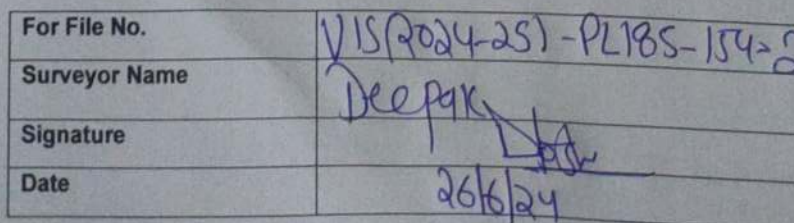 For File No. VIS(2024-25)-PL185-154-
Surveyor Name Deepak
Signature
Date 26/6/24